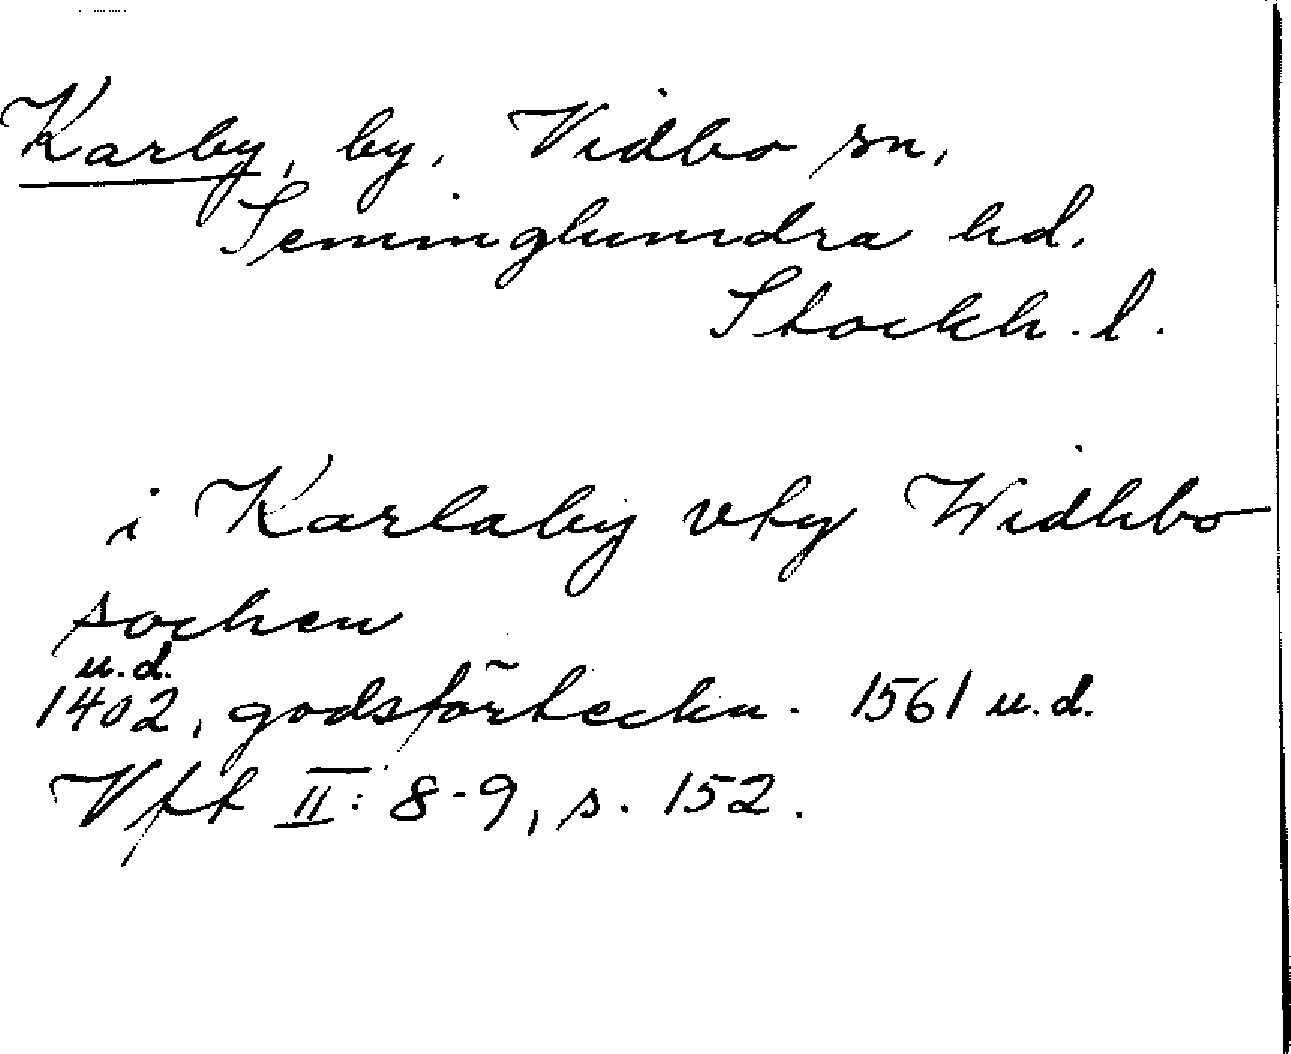 Karby, by, Vidbo sn,
Seminghundra hd.
Stockh. l.
i Karlaby vtj Widhbo
sochen
u.d.
1402, godsförteckn. 1561 u.d.
Vft II: 8-9, s. 152.